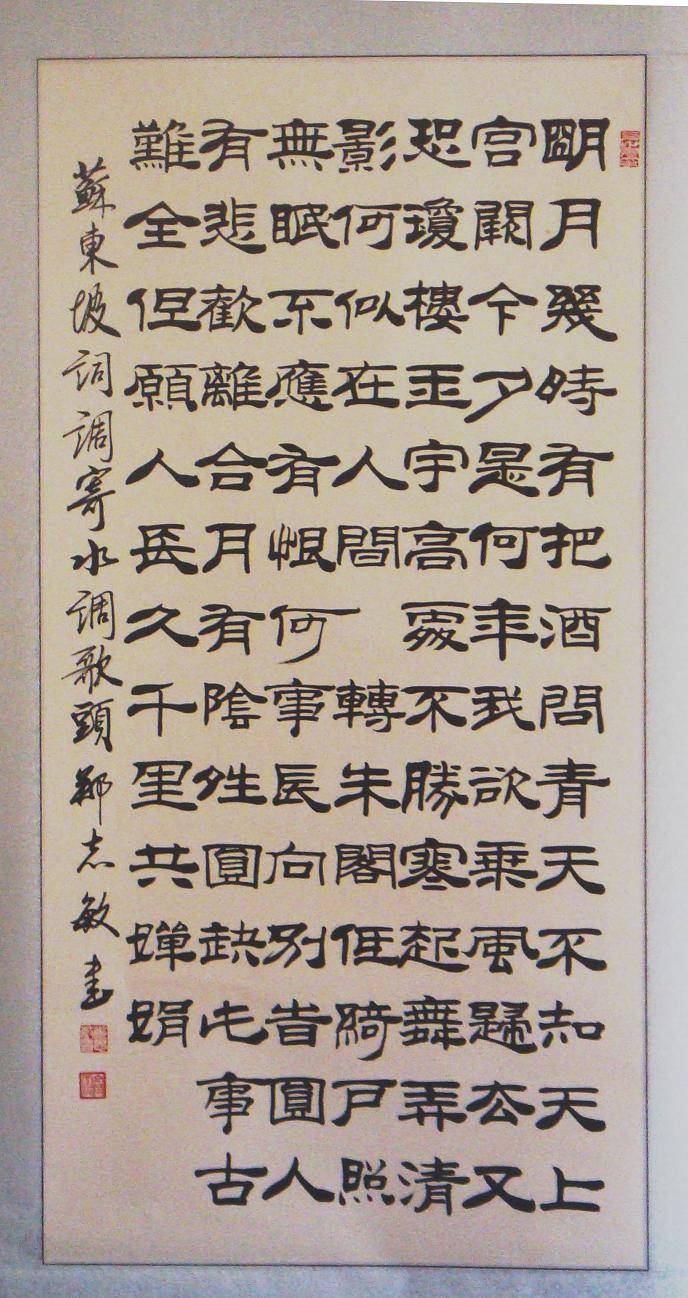 朙月幾時有把酒問青天不知天上
宮闕今夕是何年我欲乘風歸厺又
恐瓊樓玉宇高處不勝寒起舞弄清
影何似在人間 轉朱閣低綺戶照
無眠不應有恨何事長向別旹圓人
有悲歡離合月有陰夝圓缺此事古
難全但願人長久千里共嬋娟
蘇東坡詞調寄水調歌頭鄭志敏書